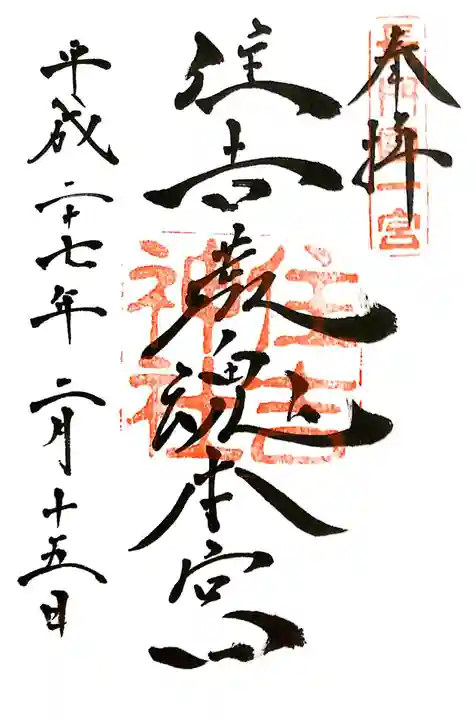 奉拝
長門國一宮
住吉荒魂本宮
住吉神社
平成二十七年二月十五日